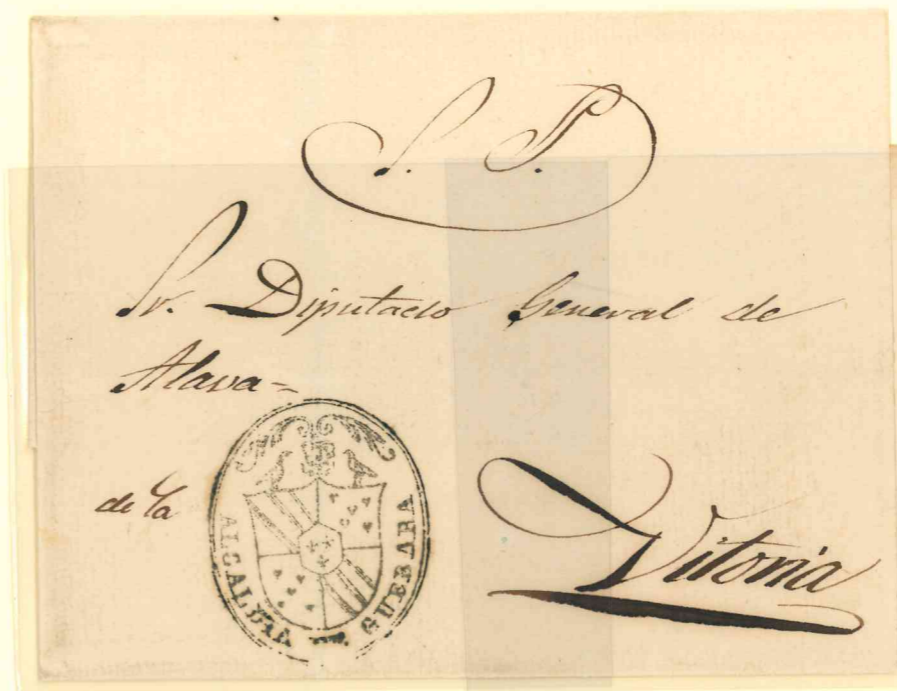 S. P.
Sr. Diputado General de
Alava=
de la
ALCALDIA DE GUEBARA
Vitoria